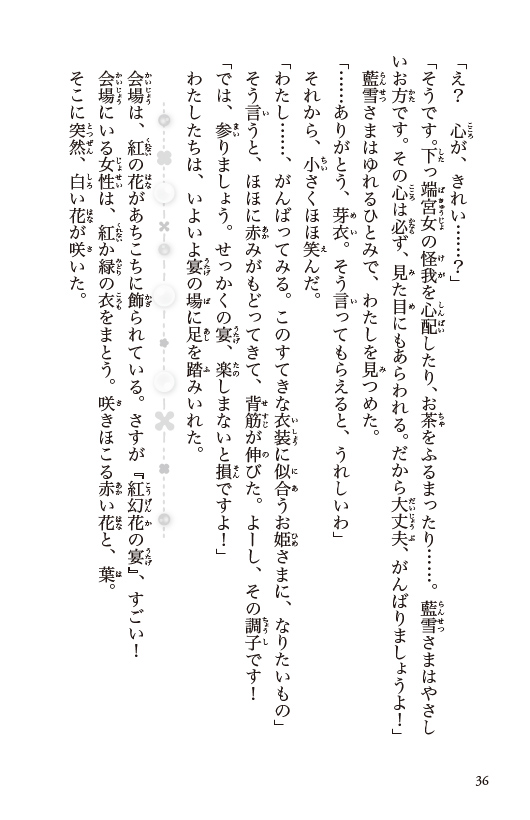 「え？　心が、きれい……？」
「そうです。下っ端宮女の怪我を心配したり、お茶をふるまったり……。藍雪さまはやさし
いお方です。その心は必ず、見た目にもあらわれる。だから大丈夫、がんばりましょうよ！」
藍雪さまはゆれるひとみで、わたしを見つめた。
「……ありがとう、芽衣。そう言ってもらえると、うれしいわ」
それから、小さくほほ笑んだ。
「わたし……、がんばってみる。このすてきな衣装に似合うお姫さまに、なりたいもの」
そう言うと、ほほに赤みがもどってきて、背筋が伸びた。よーし、その調子です！
「では、参りましょう。せっかくの宴、楽しまないと損ですよ！」
わたしたちは、いよいよ宴の場に足を踏みいれた。
会場は、紅の花があちこちに飾られている。さすが『紅幻花の宴』、すごい！
会場にいる女性は、紅か緑の衣をまとう。咲きほこる赤い花と、葉。
そこに突然、白い花が咲いた。
36